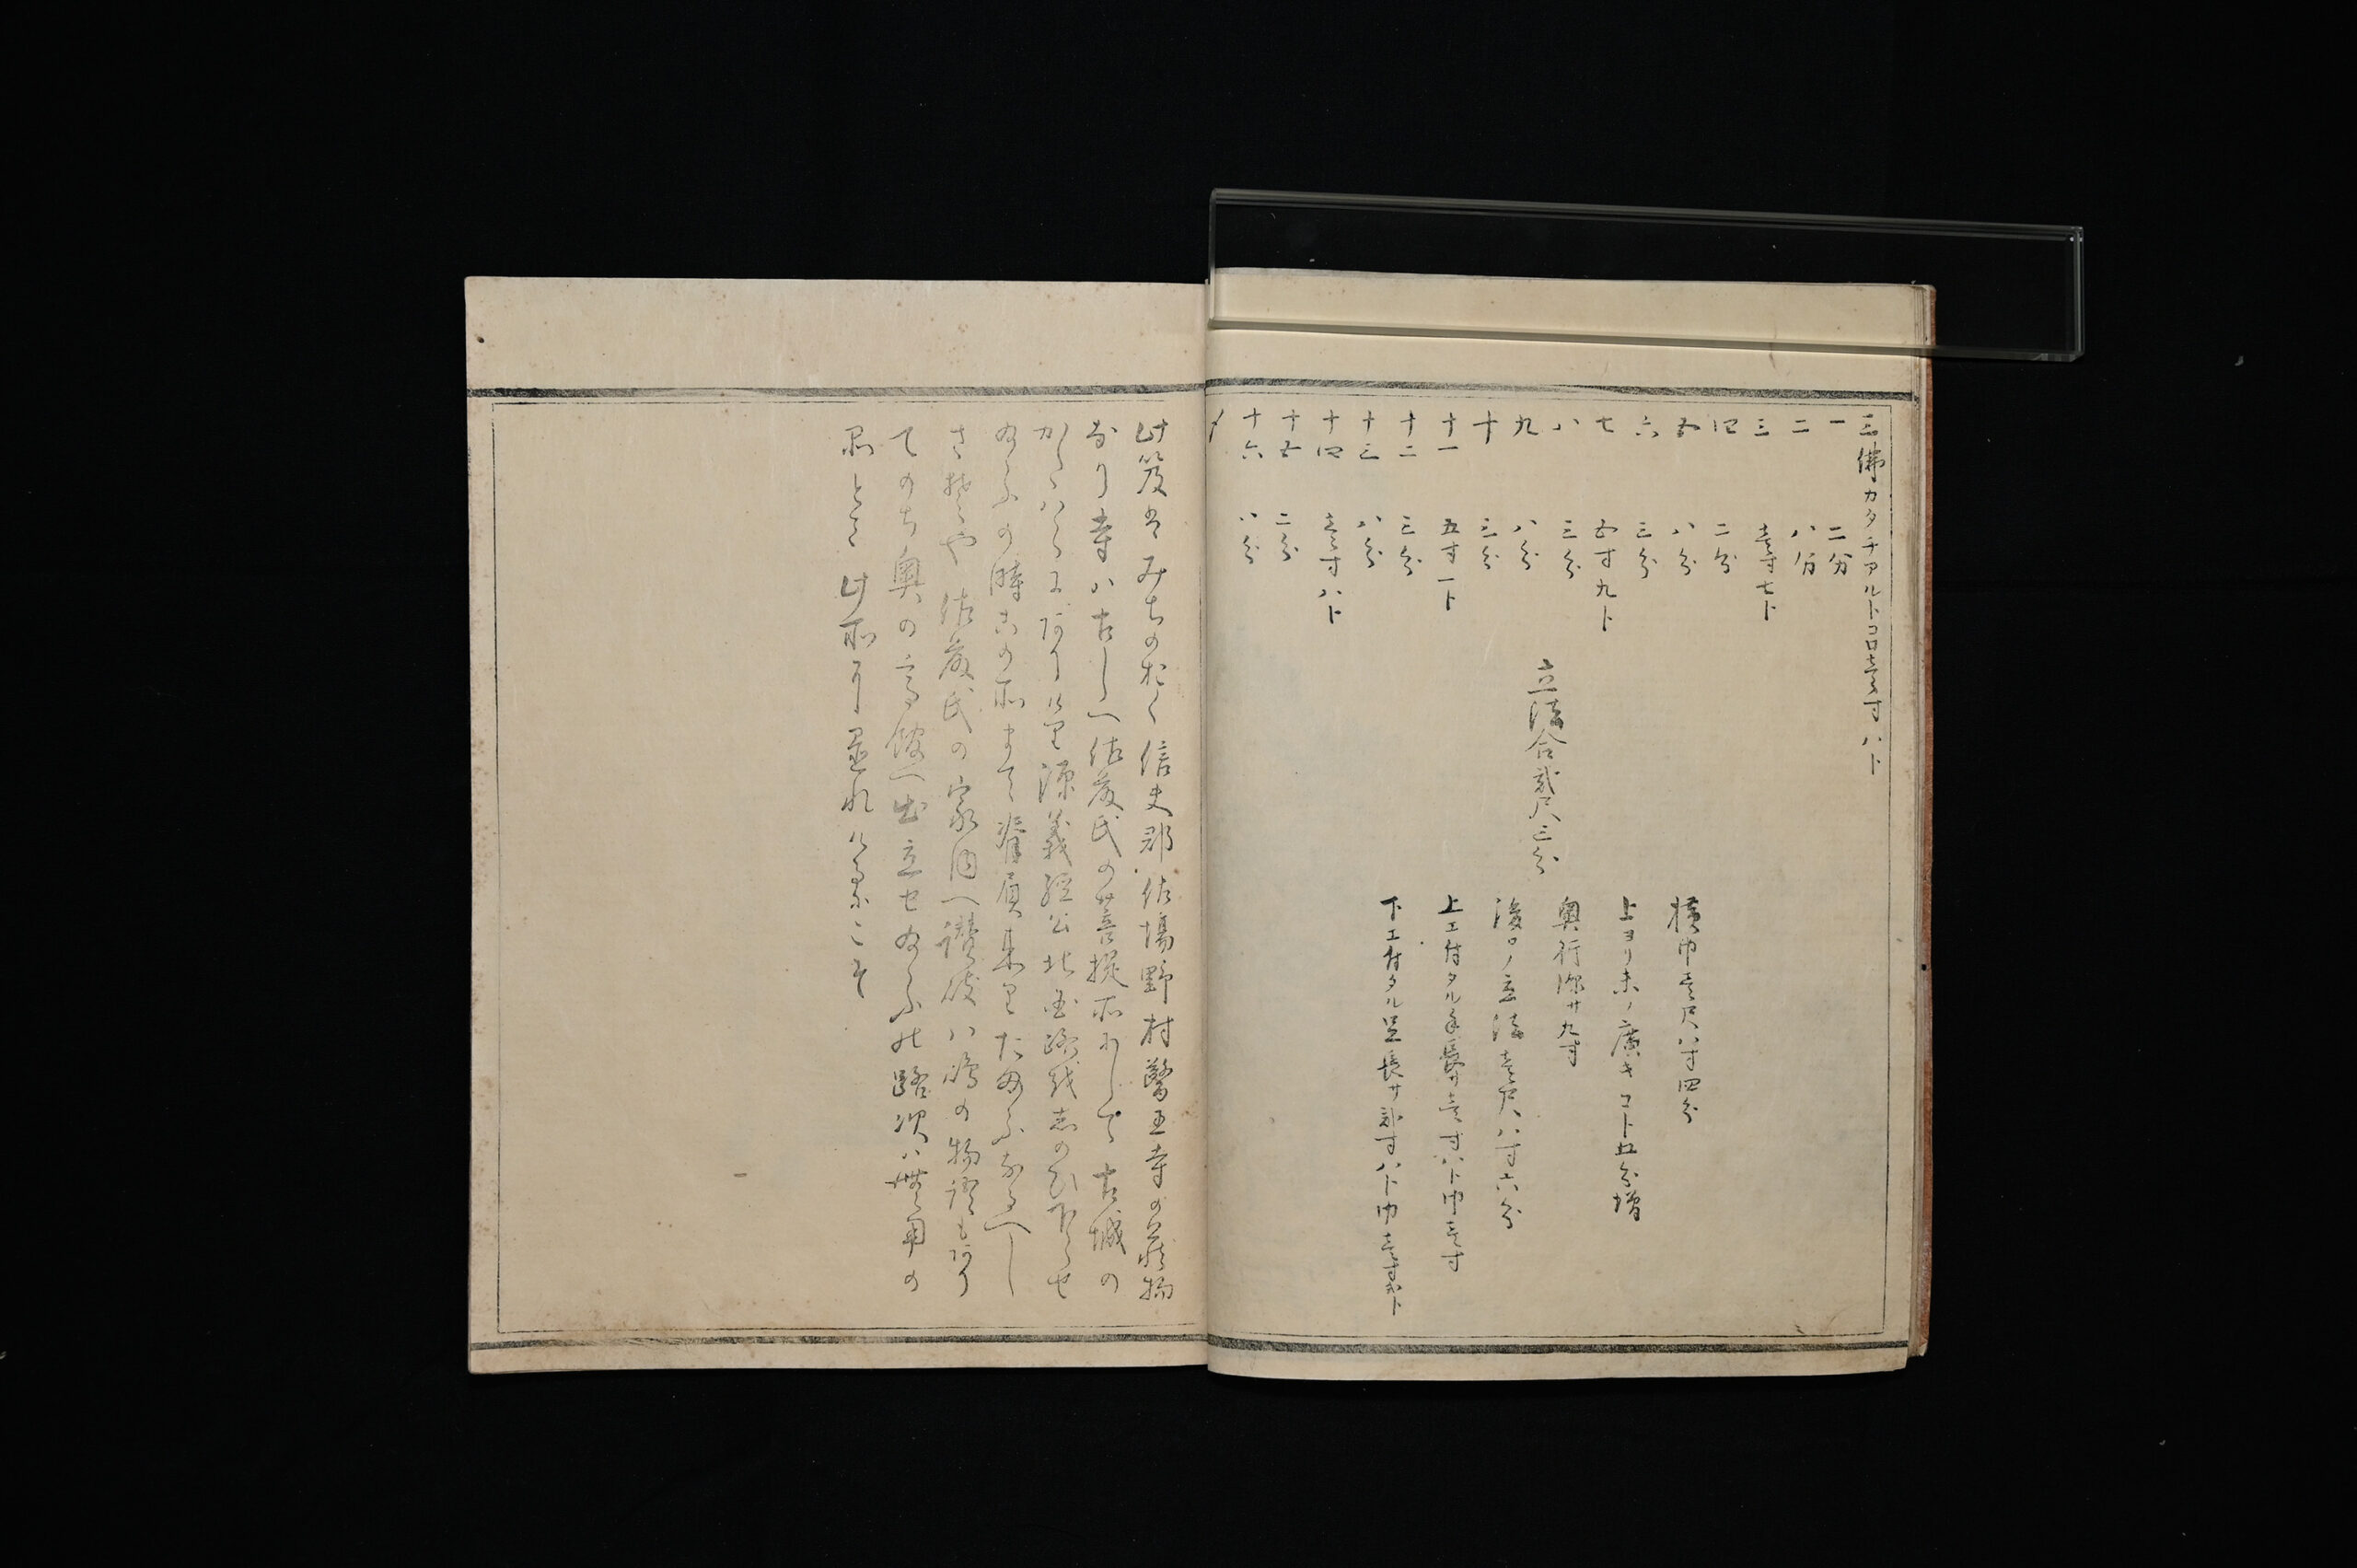 三佛カタチアルトコロ壹寸八卜
一 二分
二 八分
三 壹寸七卜
四 二分
五 八分
六 三分
七 五寸九卜
八 三分
九 八分
十 三分
十一 五寸一卜
十二 三分
十三 八分
十四 壹寸八卜
十五 二分
十六 八分
〆
立法合貳尺三分
横巾壹尺八寸四分
上ヨリ末ノ廣キコト五分増
奥行深サ九寸
後口ノ立法壹尺八寸六分
上エ付タル手長サ壹寸八卜巾壹寸
下エ付タル足長サ貳寸八卜巾壹寸貳卜
此笈はみちのおく信夫郡佐場野村醫王寺の什物
なり寺ハ古しへ佐藤氏の菩提所にして古城の
かたハらにありけり源義経公北国路越しのひ下らせ
給ふの時この所まて脊負来りたまふなるへし
されや佐藤氏の家内へ讃岐八嶋の物語もあり
てのち奥の高舘へ出立せ給ふ此路次ハ無用の
品とて此所に置れけるにこそ